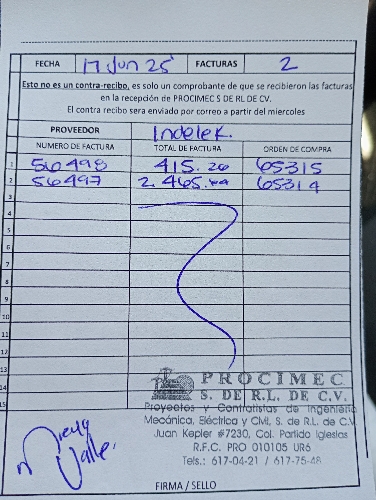 FECHA 17 Jun 25 FACTURAS 2
Esto no es un contra-recibo, es solo un comprobante de que se recibieron las facturas
en la recepción de PROCIMEC S DE RL DE CV.
El contra recibo sera enviado por correo a partir del miercoles
PROVEEDOR Indelek.
NUMERO DE FACTURA TOTAL DE FACTURA ORDEN DE COMPRA
1 56498 415.20 65315
2 56497 2,465. 65314
3
4
5
6
7
8
9
10
11
12
13
14
15
PROCIMEC
S. DE R.L. DE C.V.
Proyectos y Contratistas de Ingeniería
Mecánica, Eléctrica y Civil, S. de R.L. de C.V.
Juan Kepler #7230, Col. Partido Iglesias
R.F.C. PRO 010105 UR6
Tels.: 617-04-21 / 617-75-48
Valle.
FIRMA / SELLO